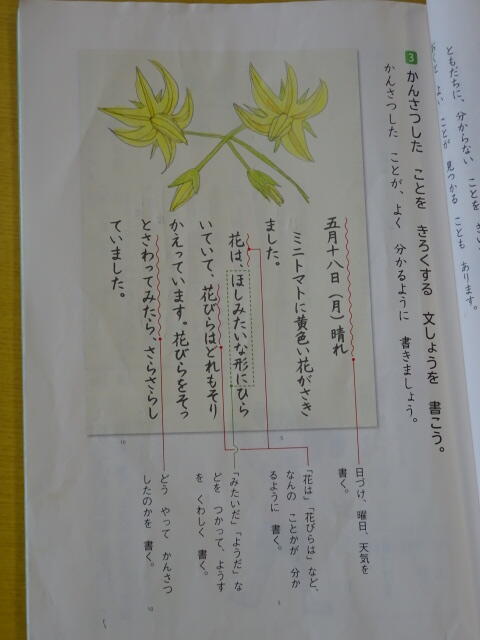 ともだちに、分からない ことを
よい ことが 見つかる ことも あります。
3 かんさつした ことを きろくする 文しょうを 書こう。
かんさつした ことが、よく 分かるように 書きましょう。
五月十八日(月)晴れ
ミニトマトに黄色い花がさき
ました。
花は、ほしみたいな形にひら
いていて、花びらはどれもそり
かえっています。花びらをそっ
とさわってみたら、さらさらし
ていました。
日づけ、曜日、天気を
書く。
「花は」「花びらは」など、
なんの ことかが 分か
るように 書く。
「みたいだ」「ようだ」な
どを つかって、ようす
を くわしく 書く。
どう やって かんさつ
したのかを 書く。
5
10
5
10